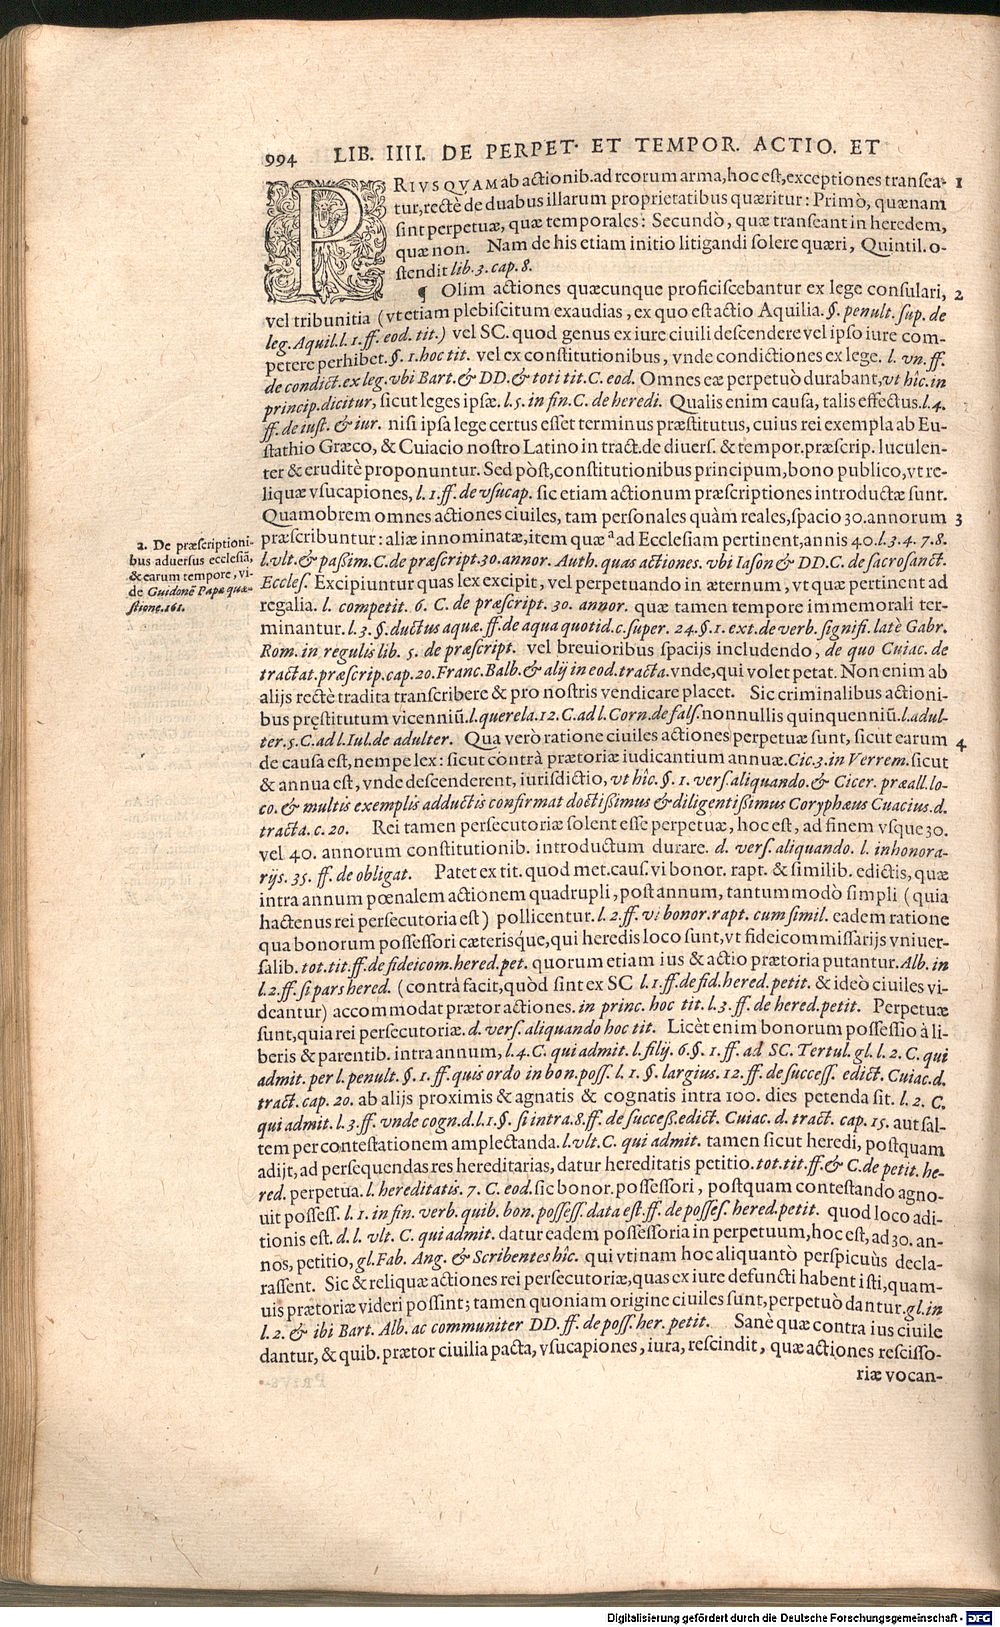 994 LIB. IIII. DE PERPET. ET TEMPOR. ACTIO. ET
PRIVSQVAM ab actionib. ad reorum arma, hoc est, exceptiones transea- 1
tur, rectè de duabus illarum proprietatibus quæritur: Primò, quænam
sint perpetuæ, quæ temporales: Secundò, quæ transeant in heredem,
quæ non. Nam de his etiam initio litigandi solere quæri, Quintil. o-
stendit lib. 3. cap. 8.
¶ Olim actiones quæcunque proficiscebantur ex lege consulari, 2
vel tribunitia (vt etiam plebiscitum exaudias, ex quo est actio Aquilia. §. penult. sup. de
leg. Aquil. l. 1. ff. eod. tit.) vel SC. quod genus ex iure ciuili descendere vel ipso iure com-
petere perhibet. §. 1. hoc tit. vel ex constitutionibus, vnde condictiones ex lege. l. vn. ff.
de condict. ex leg. vbi Bart. & DD. & toti tit. C. eod. Omnes eæ perpetuò durabant, vt hîc. in
princip. dicitur, sicut leges ipsæ. l. 5. in fin. C. de heredi. Qualis enim causa, talis effectus. l. 4.
ff. de iust. & iur. nisi ipsa lege certus esset terminus præstitutus, cuius rei exempla ab Eu-
stathio Græco, & Cuiacio nostro Latino in tract. de diuers. & tempor. præscrip. luculen-
ter & eruditè proponuntur. Sed pòst, constitutionibus principum, bono publico, vt re-
liquæ vsucapiones, l. 1. ff. de vsucap. sic etiam actionum præscriptiones introductæ sunt.
Quamobrem omnes actiones ciuiles, tam personales quàm reales, spacio 30. annorum 3
præscribuntur: aliæ innominatæ, item quæ ᵃ ad Ecclesiam pertinent, annis 40. l. 3. 4. 7. 8.
l. vlt. & passim. C. de præscript. 30. annor. Auth. quas actiones. vbi Iason & DD. C. de sacrosanct.
Eccles. Excipiuntur quas lex excipit, vel perpetuando in æternum, vt quæ pertinent ad
regalia. l. competit. 6. C. de præscript. 30. annor. quæ tamen tempore immemorali ter-
minantur. l. 3. §. ductus aquæ. ff. de aqua quotid. c. super. 24. §. 1. ext. de verb. signifi. latè Gabr.
Rom. in regulis lib. 5. de præscript. vel breuioribus spacijs includendo, de quo Cuiac. de
tractat. præscrip. cap. 20. Franc. Balb. & alij in eod. tracta. vnde, qui volet petat. Non enim ab
alijs rectè tradita transcribere & pro nostris vendicare placet. Sic criminalibus actioni-
bus pręstitutum vicenniũ. l. querela. 12. C. ad l. Corn. de fals. nonnullis quinquenniũ. l. adul-
ter. 5. C. ad l. Iul. de adulter. Qua verò ratione ciuiles actiones perpetuæ sunt, sicut earum 4
de causa est, nempe lex: sicut contrà prætoriæ iudicantium annuæ. Cic. 3. in Verrem. sicut
& annua est, vnde descenderent, iurisdictio, vt hîc. §. 1. vers. aliquando. & Cicer. præall. lo-
co. & multis exemplis adductis confirmat doctissimus & diligentissimus Coryphæus Cuacius. d.
tracta. c. 20. Rei tamen persecutoriæ solent esse perpetuæ, hoc est, ad finem vsque 30.
vel 40. annorum constitutionib. introductum durare. d. vers. aliquando. l. in honora-
rijs. 35. ff. de obligat. Patet ex tit. quod met. caus. vi bonor. rapt. & similib. edictis, quæ
intra annum pœnalem actionem quadrupli, post annum, tantummodò simpli (quia
hactenus rei persecutoria est) pollicentur. l. 2. ff. vi bonor. rapt. cum simil. eadem ratione
qua bonorum possessori cæterisque, qui heredis loco sunt, vt fideicommissarijs vniuer-
salib. tot. tit. ff. de fideicom. hered. pet. quorum etiam ius & actio prætoria putantur. Alb. in
l. 2. ff. si pars hered. (contrà facit, quòd sint ex SC l. 1. ff. de fid. hered. petit. & ideò ciuiles vi-
deantur) accommodat prætor actiones. in princ. hoc tit. l. 3. ff. de hered. petit. Perpetuæ
sunt, quia rei persecutoriæ. d. vers. aliquando hoc tit. Licèt enim bonorum possessio à li-
beris & parentib. intra annum, l. 4. C. qui admit. l. filij. 6. §. 1. ff. ad SC. Tertul. gl. l. 2. C. qui
admit. per l. penult. §. 1. ff. quis ordo in bon. poss. l. 1. §. largius. 12. ff. de success. edict. Cuiac. d.
tract. cap. 20. ab alijs proximis & agnatis & cognatis intra 100. dies petenda sit. l. 2. C.
qui admit. l. 3. ff. vnde cogn. d. l. 1. §. si intra. 8. ff. de success. edict. Cuiac. d. tract. cap. 15. aut sal-
tem per contestationem amplectanda. l. vlt. C. qui admit. tamen sicut heredi, postquam
adijt, ad persequendas res hereditarias, datur hereditatis petitio. tot. tit. ff. & C. de petit. he-
red. perpetua. l. hereditatis. 7. C. eod. sic bonor. possessori, postquam contestando agno-
uit possess. l. 1. in fin. verb. quib. bon. possess. data est. ff. de posses. hered. petit. quod loco adi-
tionis est. d. l. vlt. C. qui admit. datur eadem possessoria in perpetuum, hoc est, ad 30. an-
nos, petitio, gl. Fab. Ang. & Scribentes hîc. qui vtinam hoc aliquantò perspicuùs decla-
rassent. Sic & reliquæ actiones rei persecutoriæ, quas ex iure defuncti habent isti, quam-
uis prætoriæ videri possint; tamen quoniam origine ciuiles sunt, perpetuò dantur. gl. in
l. 2. & ibi Bart. Alb. ac communiter DD. ff. de poss. her. petit. Sanè quæ contra ius ciuile
dantur, & quib. prætor ciuilia pacta, vsucapiones, iura, rescindit, quæ actiones rescisso-
riæ vocan-
a. De præscriptioni-
bus aduersus ecclesiã,
& earum tempore, vi-
de Guidonẽ Papæ quæ-
stione. 161.
Digitalisierung gefördert durch die Deutsche Forschungsgemeinschaft - DFG